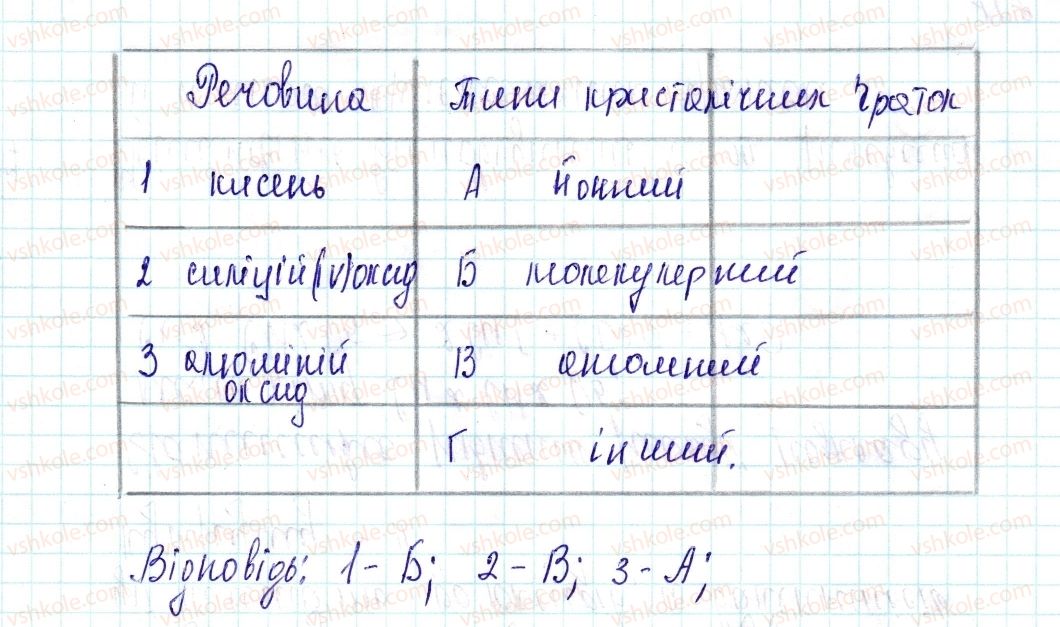 Речовина Типи кристалічних ґраток
1 кисень А йонний
2 силіцій(IV)оксид Б молекулярний
3 алюміній В атомний
оксид
Г інший.
Відповідь: 1-Б; 2-В; 3-А;